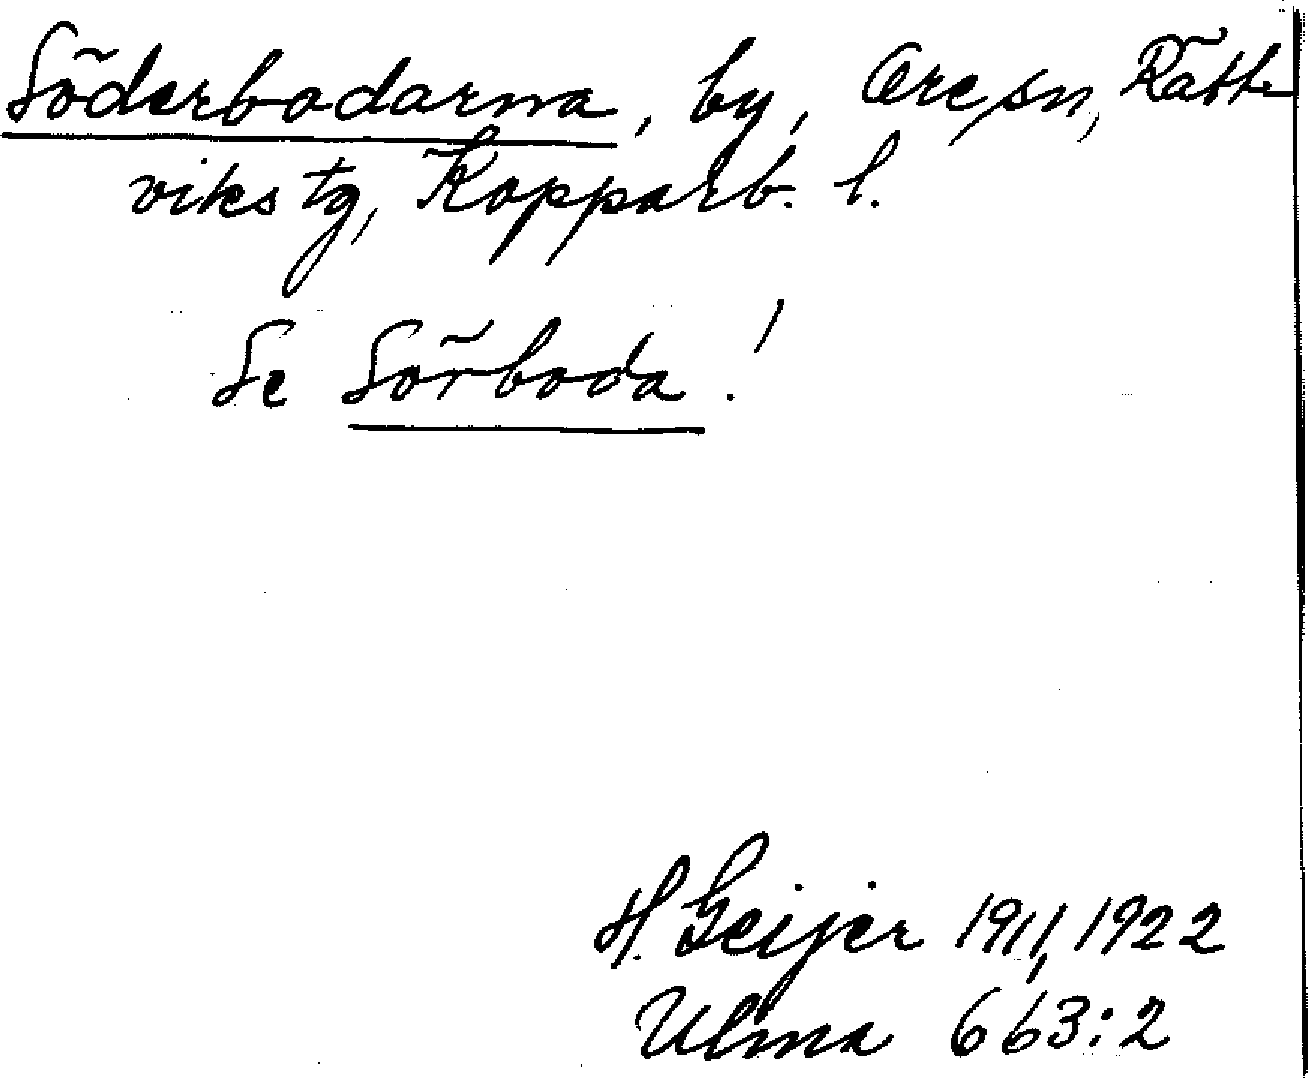 Söderbodarna, by, Ore sn, Rätt-
viks tg, Kopparb. l.
Se Sörboda!
H. Geijer 1911, 1922
Ulma 663:2